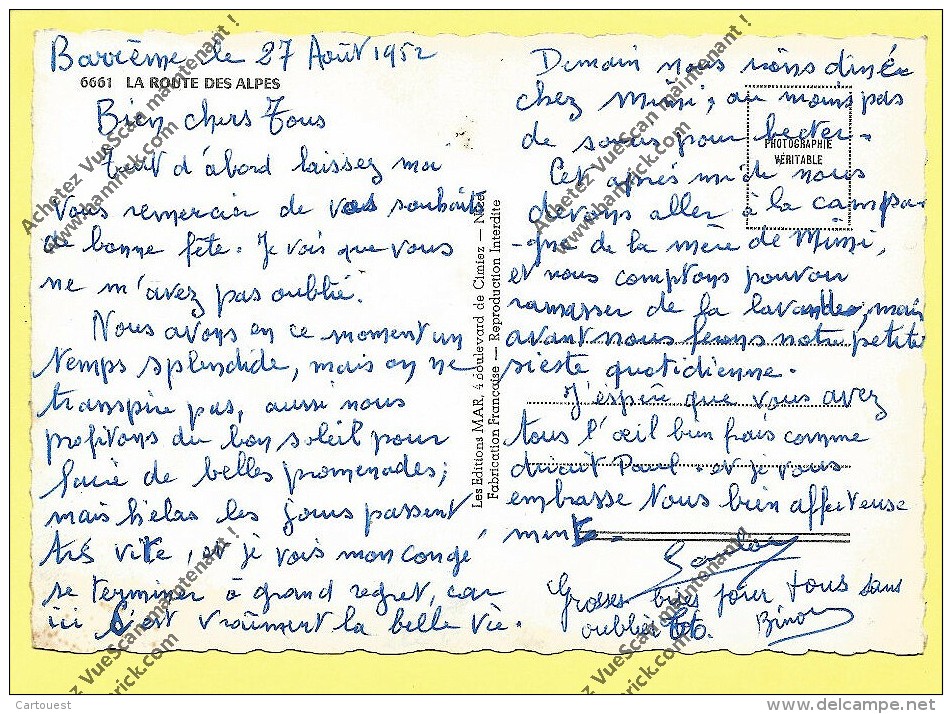 Barrême le 27 Août 1952
6661 LA ROUTE DES ALPES
Bien chers Tous
Tout d'abord laissez moi
vous remercier de vos souhaits
de bonne fête. Je vois que vous
ne m'avez pas oublié.
Nous avons en ce moment un
temps splendide, mais on ne
transpire pas, aussi nous
profitons du bon soleil pour
faire de belles promenades;
mais hélas les jours passent
très vite, et je vois mon congé
se terminer à grand regret, car
ici c'est vraiment la belle vie.
Les Editions MAR, 4 boulevard de Cimiez — Nice
Fabrication Française — Reproduction Interdite
PHOTOGRAPHIE
VÉRITABLE
Demain nous irons diner
chez Mimi, au moins pas
de soucis pour becter.
Cet après midi nous
devons aller à la campa-
-gne de la mère de Mimi,
et nous comptons pouvoir
ramasser de la lavande, mais
avant nous ferons notre petite
sieste quotidienne.
J'espère que vous avez
tous l'œil bien frais comme
dirait Paul. et je vous
embrasse tous bien affectueuse
ment.
Grosses bises pour tous sans
oublier
Achetez VueScan maintenant !
www.hamrick.com
Achetez VueScan maintenant !
www.hamrick.com
Achetez VueScan maintenant !
www.hamrick.com
Achetez VueScan maintenant !
www.hamrick.com
Cartouest
delcampe.net